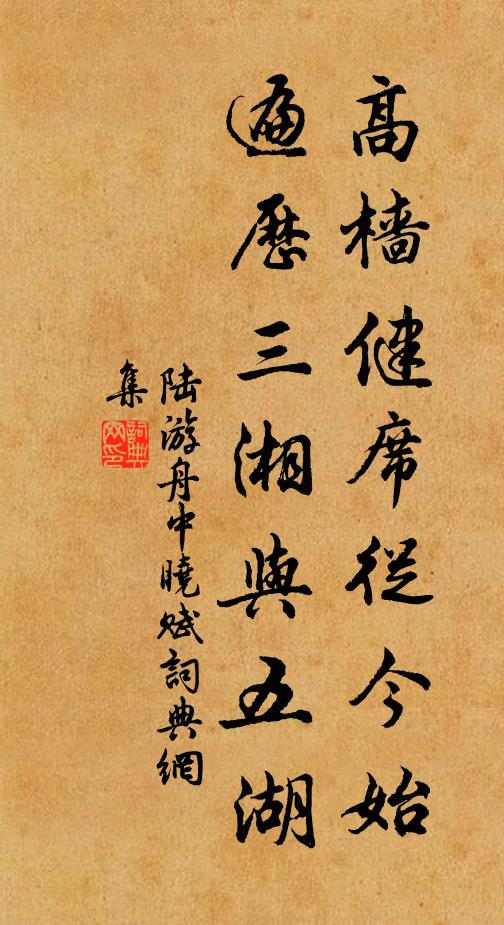 高檣健席從今始
遍歷三湘與五湖
陸游舟中曉賦詞典網
集
詞典
网印